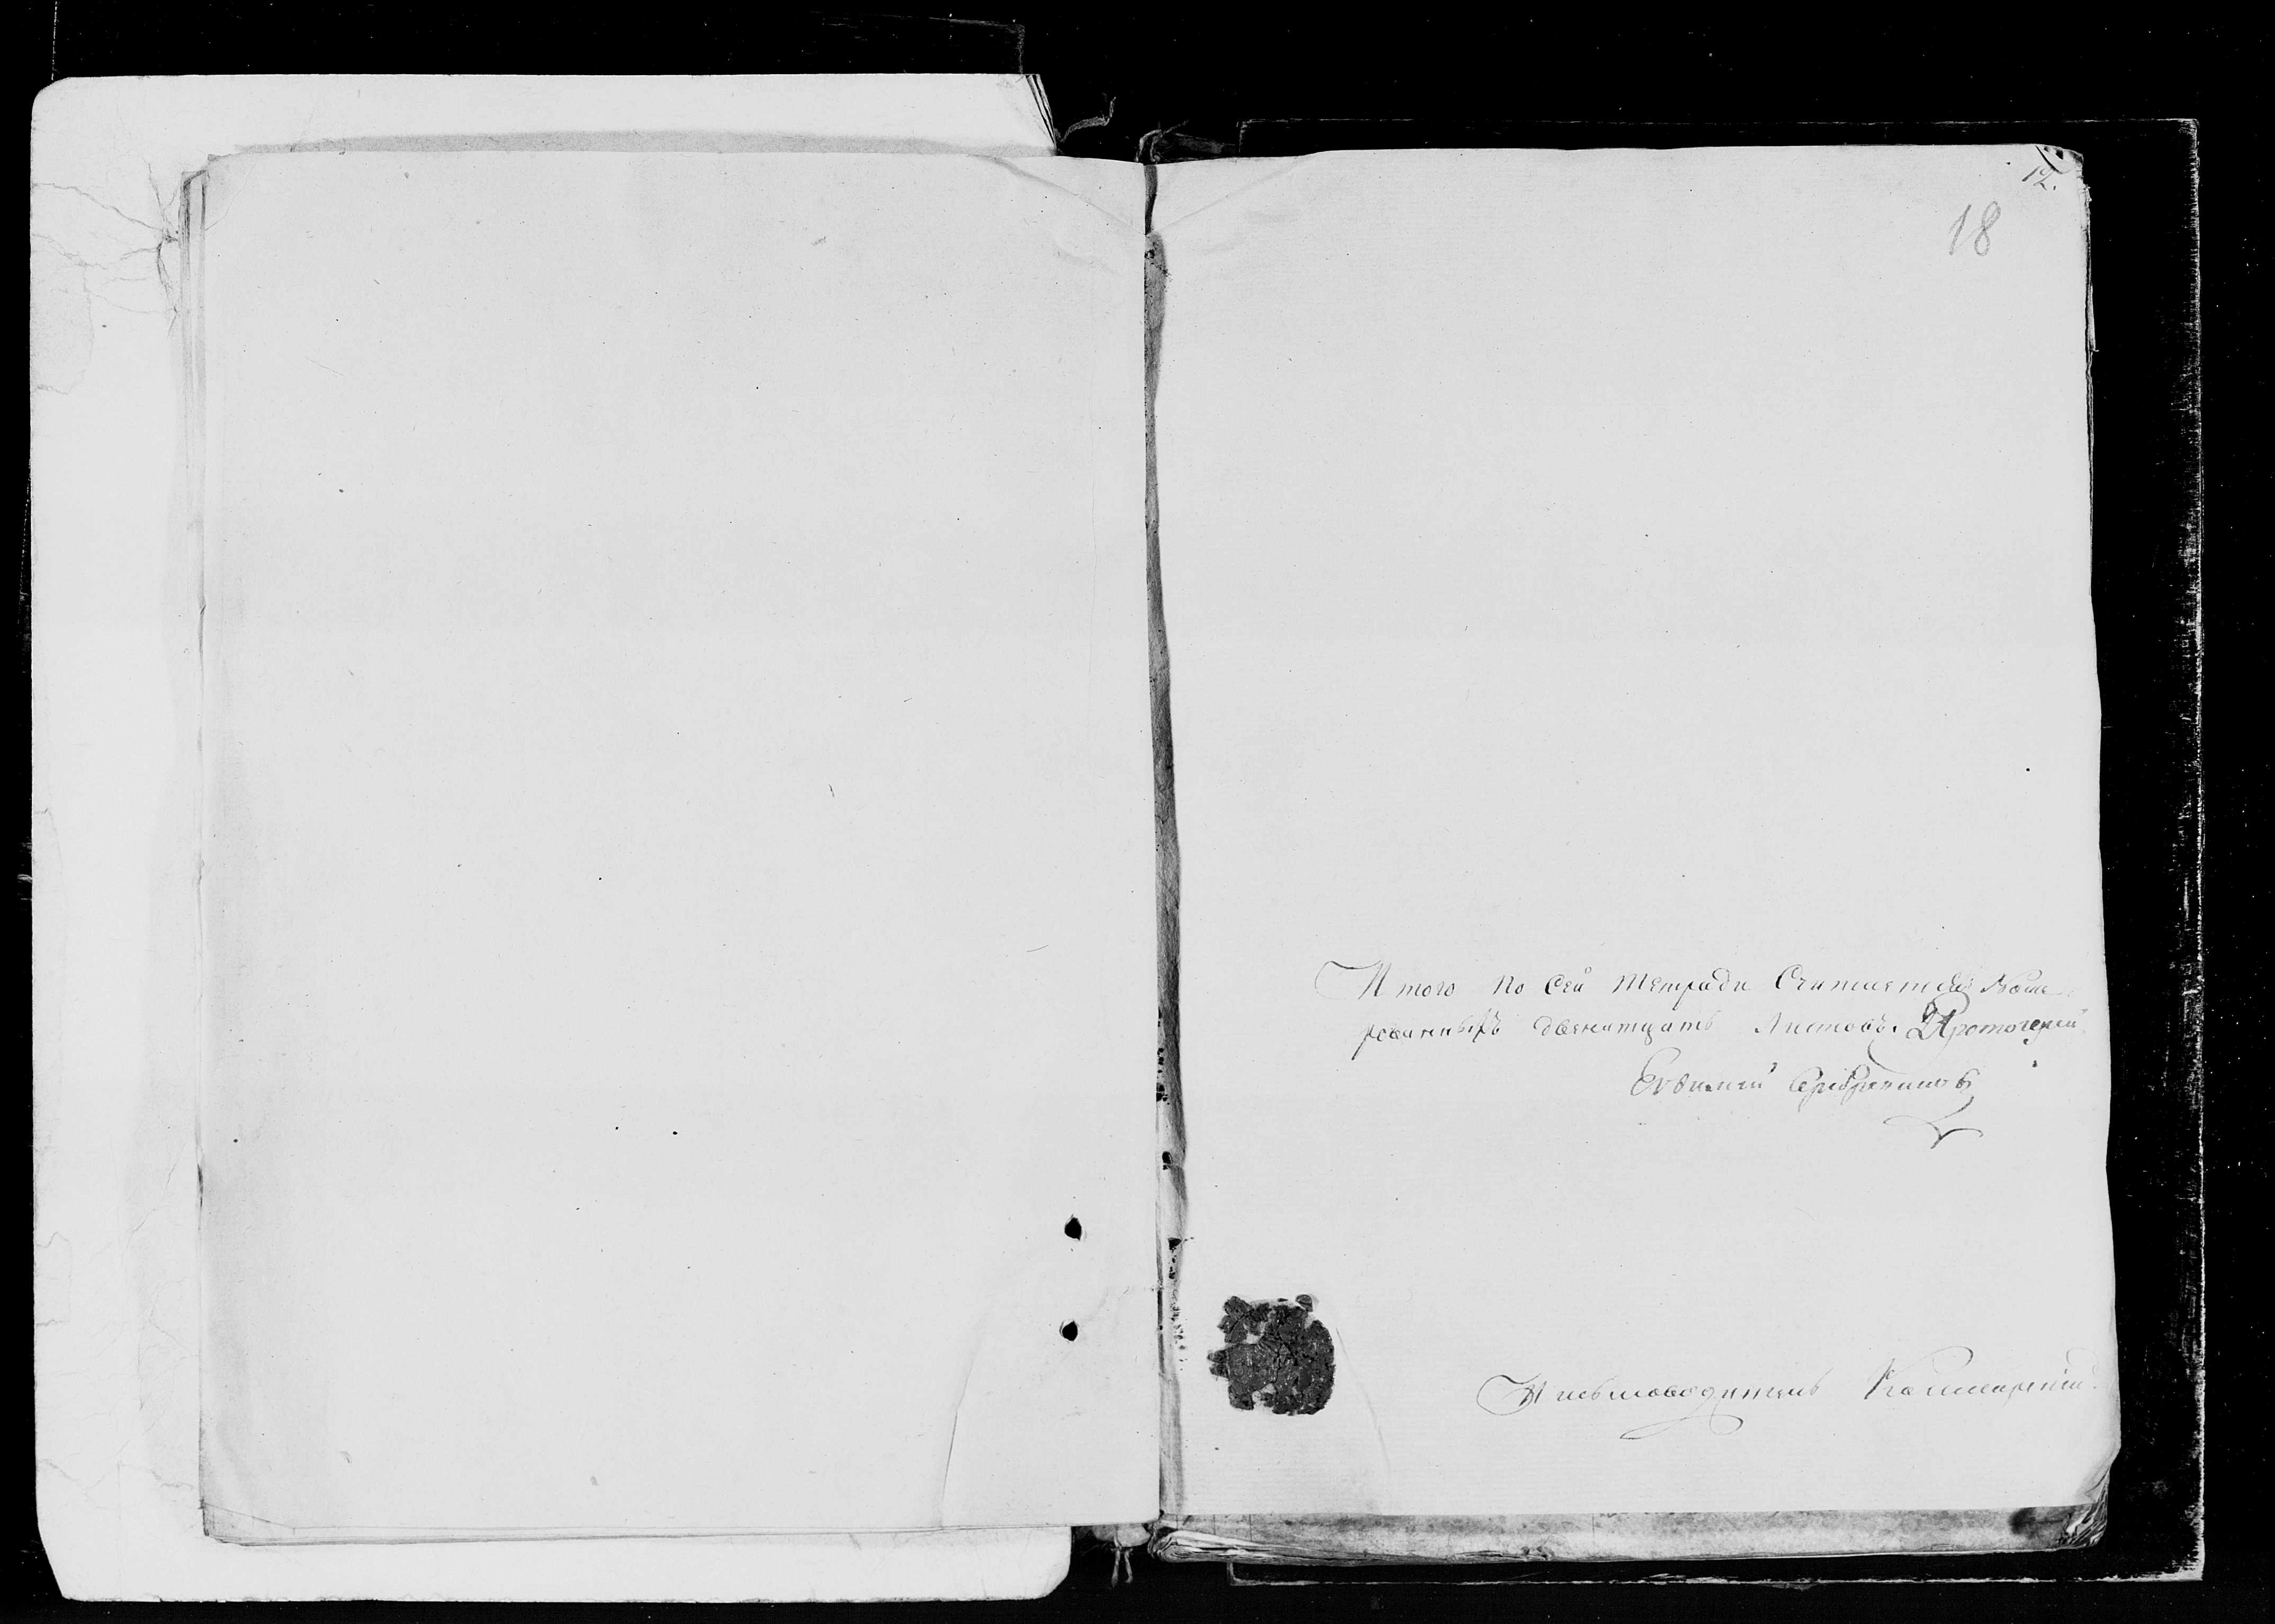 12.
18
Итого по сей тетради Считается Номе-
рованныхъ двенатцать Листовъ. Протоиерей
Евфимий Серебрениковъ
Письмоводитель